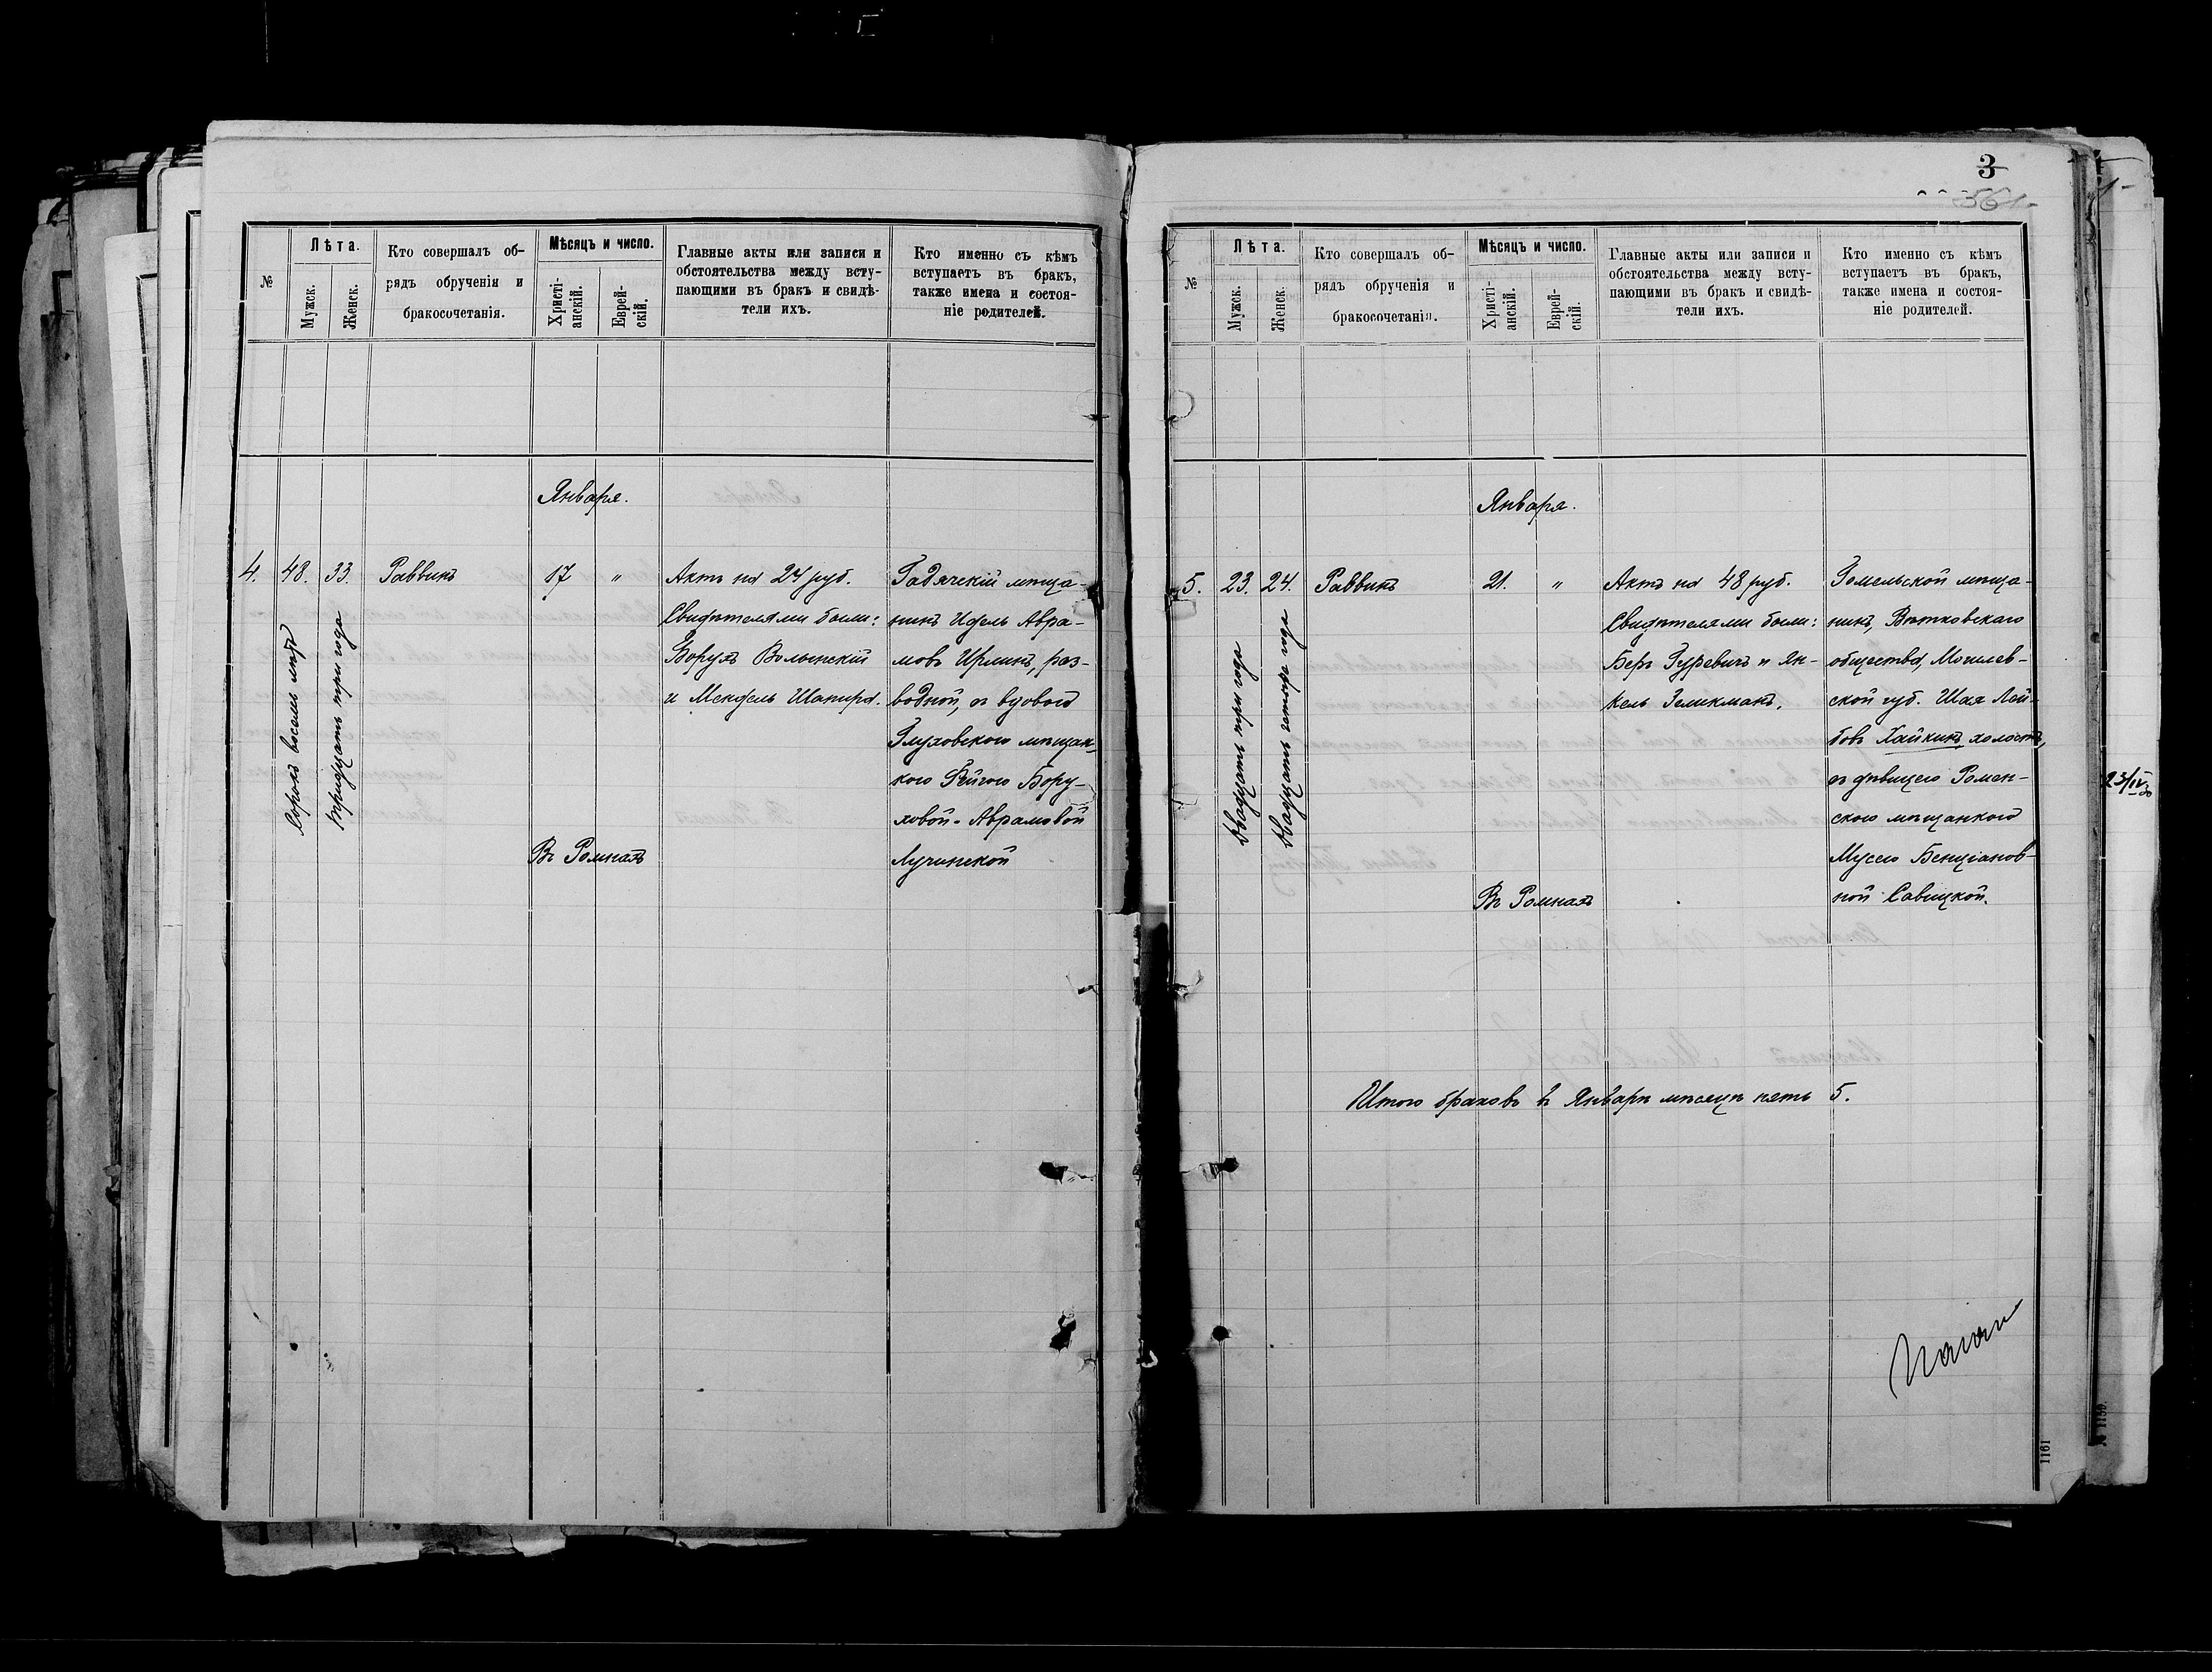 №
Лѣта.
Мужск.
Женск.
Кто совершалъ об-
рядъ обрученія и
бракосочетанія.
Мѣсяцъ и число.
Христі-
анскій.
Еврей-
скій.
Главные акты или записи и
обстоятельства между всту-
пающими въ бракъ и свидѣ-
тели ихъ.
Кто именно съ кѣмъ
вступаетъ въ бракъ,
также имена и состоя-
ніе родителей.
Января.
4. 48. 33. Раввинъ 17 "
Сорокъ восемь лѣтъ
Тридцать три года
Актъ на 24 руб.
Свидѣтелями были:
Борухъ Волынскій
и Мендель Шапира.
Гадячскій мѣща-
нинъ Идель Авра-
мовъ Ирлинъ, раз-
водной, съ вдовою
Глуховскою мѣщан-
кою Фейгою Бору-
ховой-Аврамовой
Лучинской
Въ Ромнахъ
3
561
№
Лѣта.
Мужск.
Женск.
Кто совершалъ об-
рядъ обрученія и
бракосочетанія.
Мѣсяцъ и число.
Христі-
анскій.
Еврей-
скій.
Главные акты или записи и
обстоятельства между всту-
пающими въ бракъ и свидѣ-
тели ихъ.
Кто именно съ кѣмъ
вступаетъ въ бракъ,
также имена и состоя-
ніе родителей.
Января.
5. 23. 24. Раввинъ 21. "
Двадцать три года
Двадцать четыре года
Актъ на 48 руб.
Свидѣтелями были:
Беръ Гуревичъ и Ян-
кель Зеликманъ.
Гомельской мѣща-
нинъ, Вѣтковскаго
общества, Могилев-
ской губ. Шая Лей-
бовъ Хайкинъ холостъ,
съ дѣвицею Ромен-
скою мѣщанкою
Мусею Бенціанов-
ной Савицкой.
Въ Ромнахъ
Итого браковъ въ Январѣ мѣсяцѣ пять 5.
1161
№ 1150.